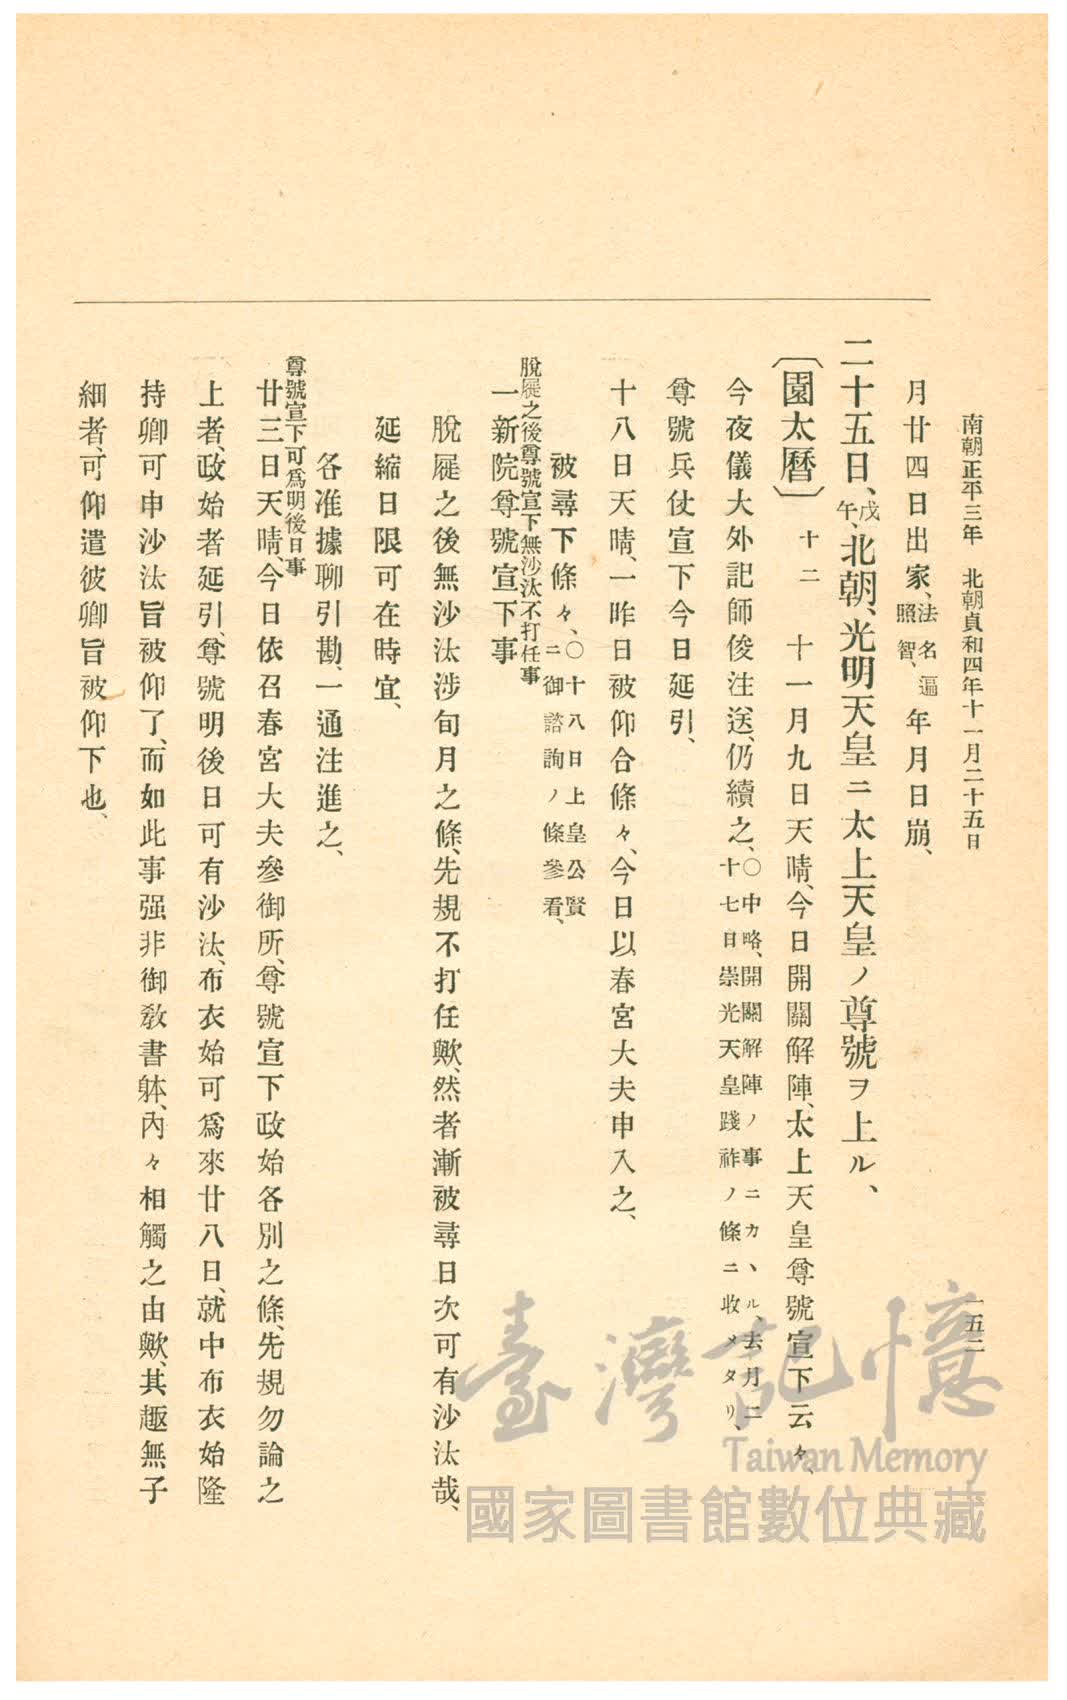 南朝正平三年　北朝貞和四年十一月二十五日
一五二
月廿四日出家、法名遍照智、年月日崩、
二十五日、戊午、北朝、光明天皇ニ太上天皇ノ尊號ヲ上ル、
〔園太曆〕十二　十一月九日天晴、今日開關解陣、太上天皇尊號宣下云々、
今夜儀大外記師俊注送、仍續之、〇中略、開關解陣ノ事ニカヽル、去月二十七日崇光天皇踐祚ノ條ニ收メタリ、
尊號兵仗宣下今日延引、
十八日天晴、一昨日被仰合條々、今日以春宮大夫申入之、
被尋下條々、〇十八日上皇公賢ニ御諮詢ノ條參看、
脫屣之後尊號宣下無沙汰不打任事
一新院尊號宣下事
脫屣之後無沙汰涉旬月之條、先規不打任歟、然者漸被尋日次可有沙汰哉、
延縮日限可在時宜、
各准據聊引勘、一通注進之、
尊號宣下可爲明後日事
廿三日天晴、今日依召春宮大夫參御所、尊號宣下政始各別之條、先規勿論之
上者、政始者延引、尊號明後日可有沙汰、布衣始可爲來廿八日、就中布衣始隆
持卿可申沙汰旨被仰了、而如此事强非御敎書躰、內々相觸之由歟、其趣無子
細者、可仰遣彼卿旨被仰下也、
臺灣記憶
Taiwan Memory
國家圖書館數位典藏